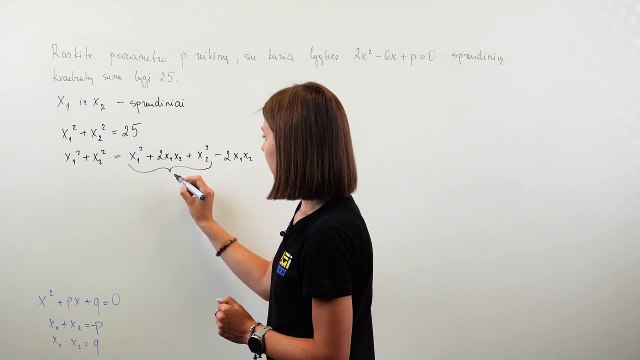 Raskite parametro p reikšmę, su kuria lygties 2x² - 6x + p = 0 sprendinių
kvadratų suma lygi 25.
x₁ ir x₂ - sprendiniai
x₁² + x₂² = 25
x₁² + x₂² = x₁² + 2x₁x₂ + x₂² - 2x₁x₂
x² + px + q = 0
x₁ + x₂ = -p
x₁ · x₂ = q